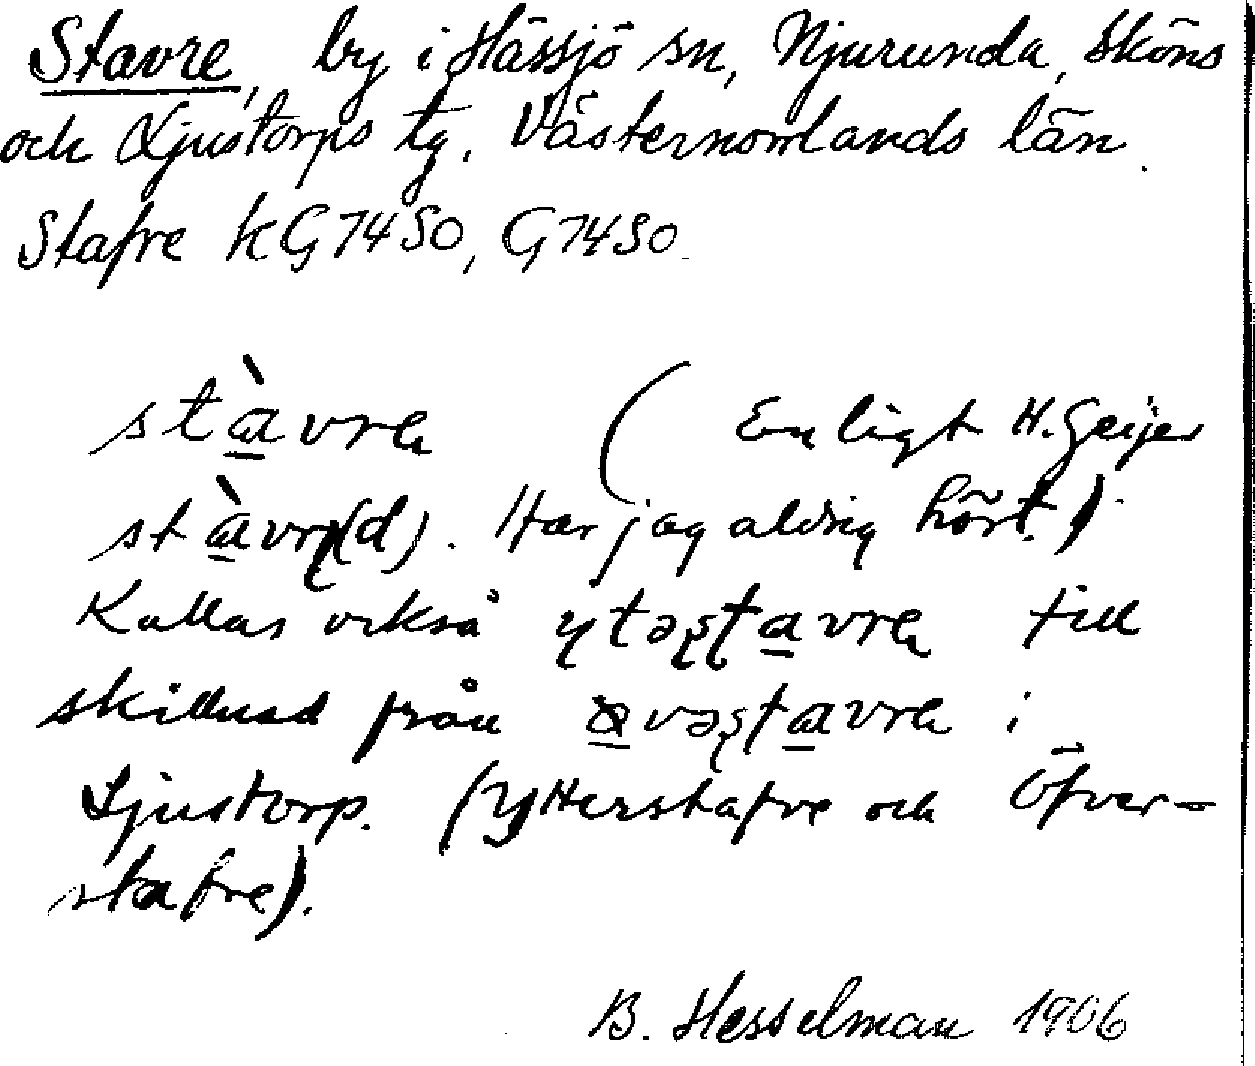 Stavre, by i Hässjö sn, Njurunda, Sköns
och Ljustorps tg. Västernorrlands län.
Stafre KG7450, G7450.
stàvra (Enligt H. Geijer
stàvr(d). Har jag aldrig hört.)
Kallas också ytəstavra till
skillnad från avəstavra i
Ljustorp. (Ytterstafre och Öfver-
stafre).
B. Hesselman 1906